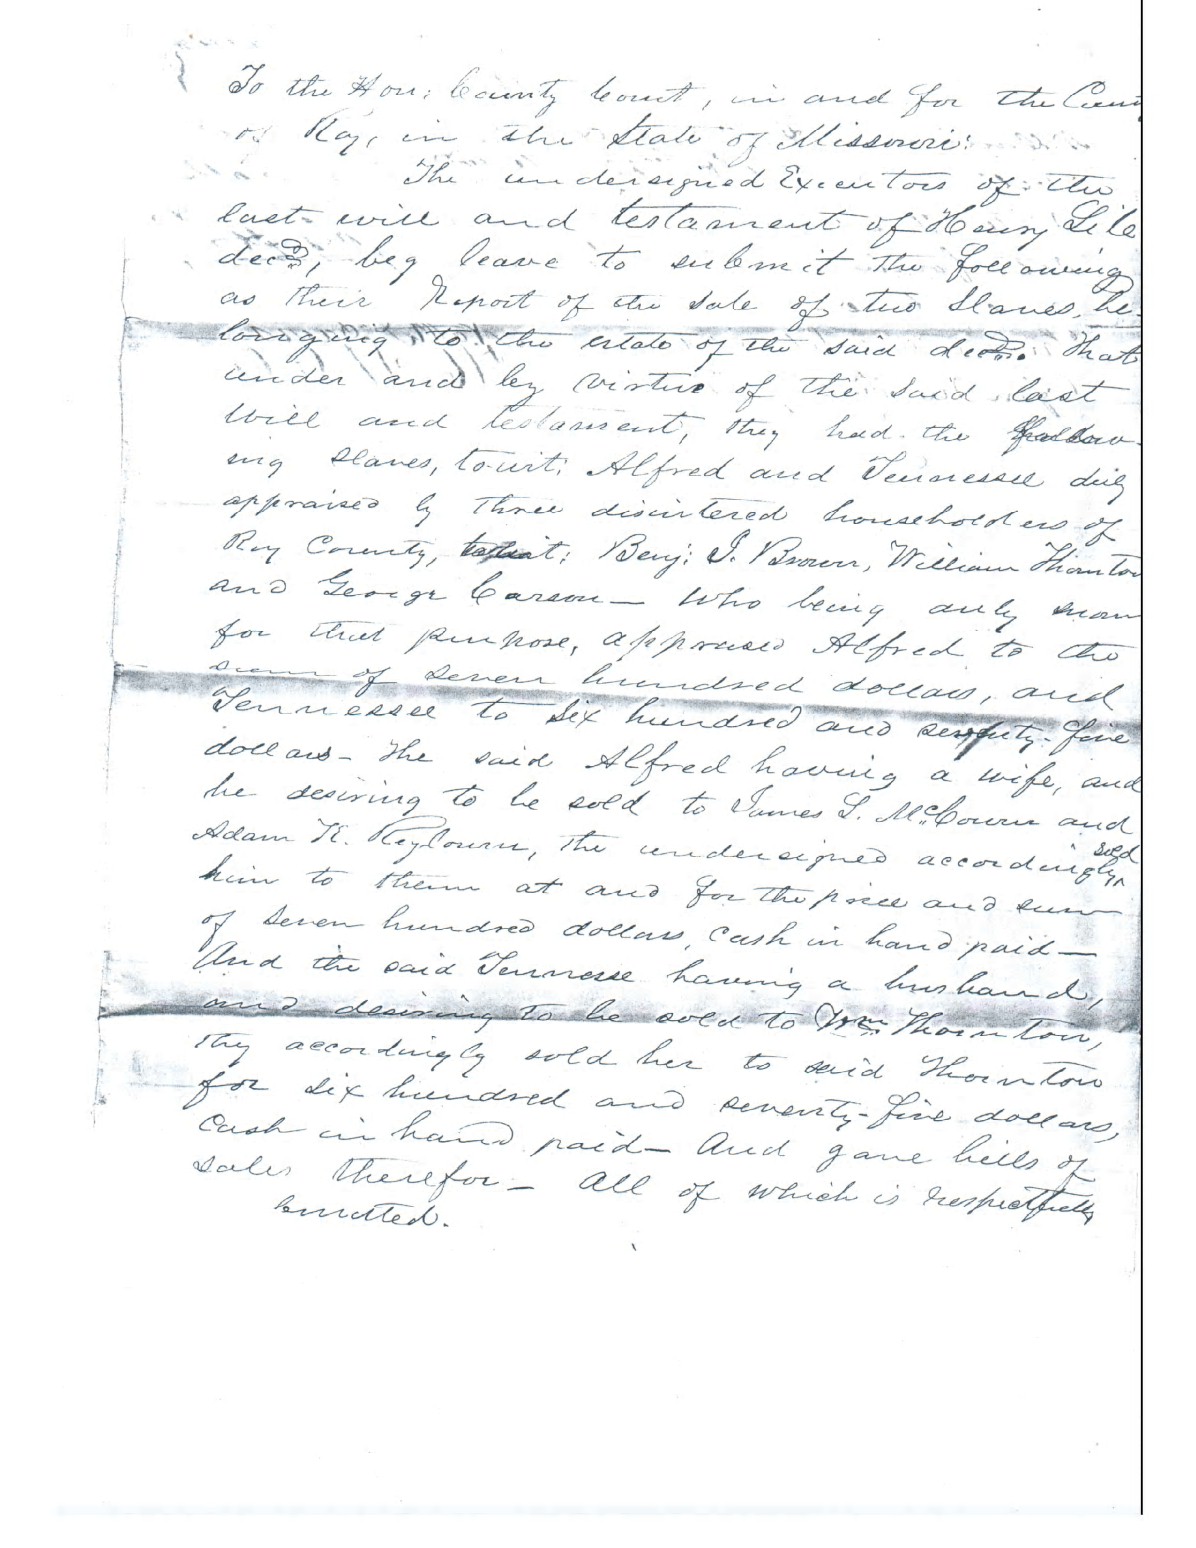 To the Hon: County Court, in and for the Coun
of Ray, in the State of Missouri:
The undersigned Executors of the
last will and testament of Henry Lile
decd, beg leave to submit the following
as their Report of the sale of two slaves, be-
longing to the estate of the said decd. That
under and by virtue of the said last
will and testament, they had the follow-
ing slaves, towit: Alfred and Tennessee duly
appraised by three disintered householders of
Ray County, towit: Benj: J. Brown, William Thornton
and George Carson — Who being duly sworn
for that purpose, appraised Alfred to the
sum of seven hundred dollars, and
Tennessee to six hundred and seventy-five
dollars — The said Alfred having a wife, and
he desiring to be sold to James L. McCown and
Adam K. Reyburn, the undersigned accordingly sold
him to them at and for the price and sum
of seven hundred dollars, cash in hand paid —
And the said Tennesse having a husband,
and desiring to be sold to Wm Thornton,
they accordingly sold her to said Thornton
for six hundred and seventy-five dollars,
cash in hand paid — And gave bills of
sales therefor — All of which is respectfully
bmitted.